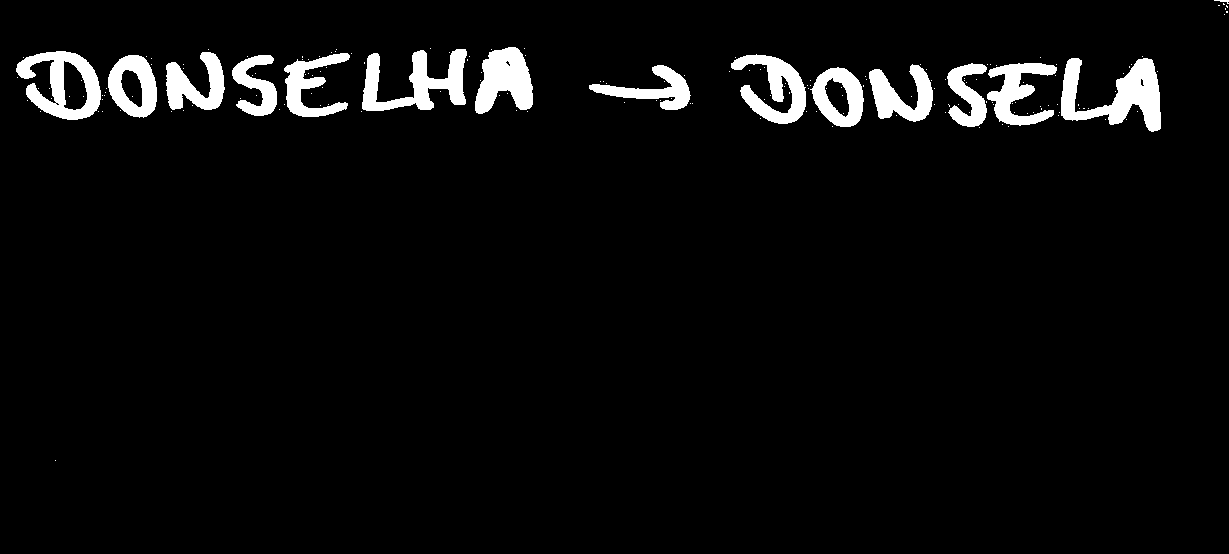 DONSELHA → DONSELA